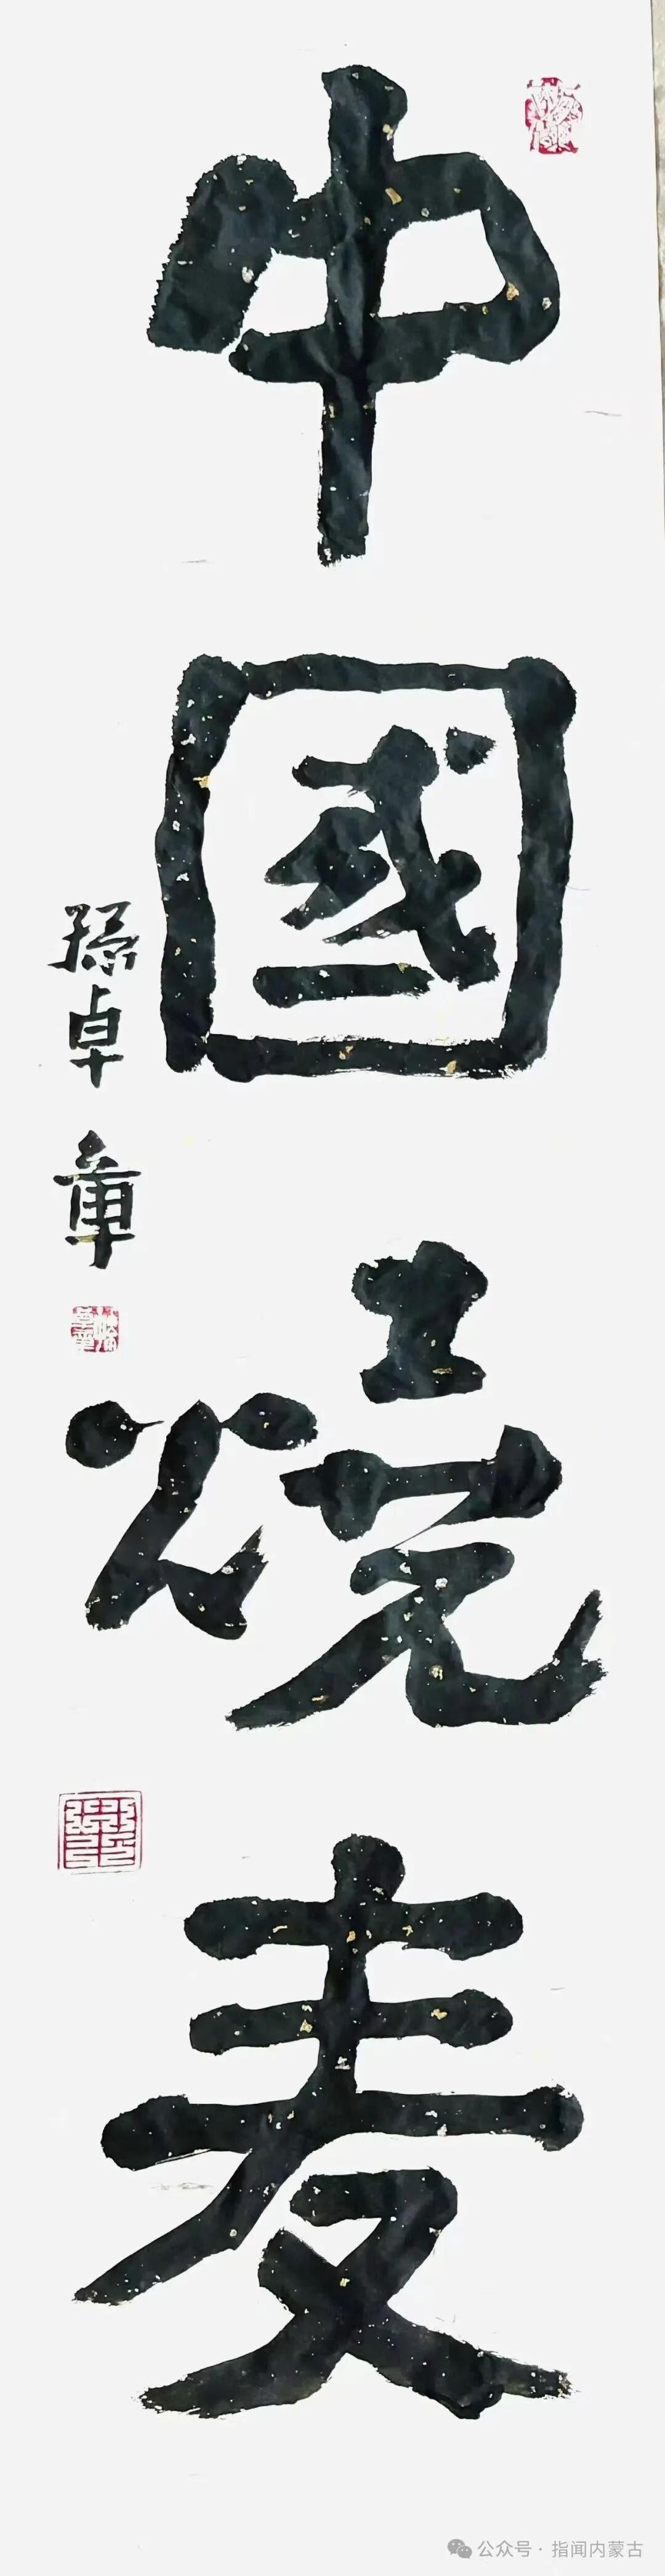 中國燒麦
孫卓章
公众号 · 指闻内蒙古